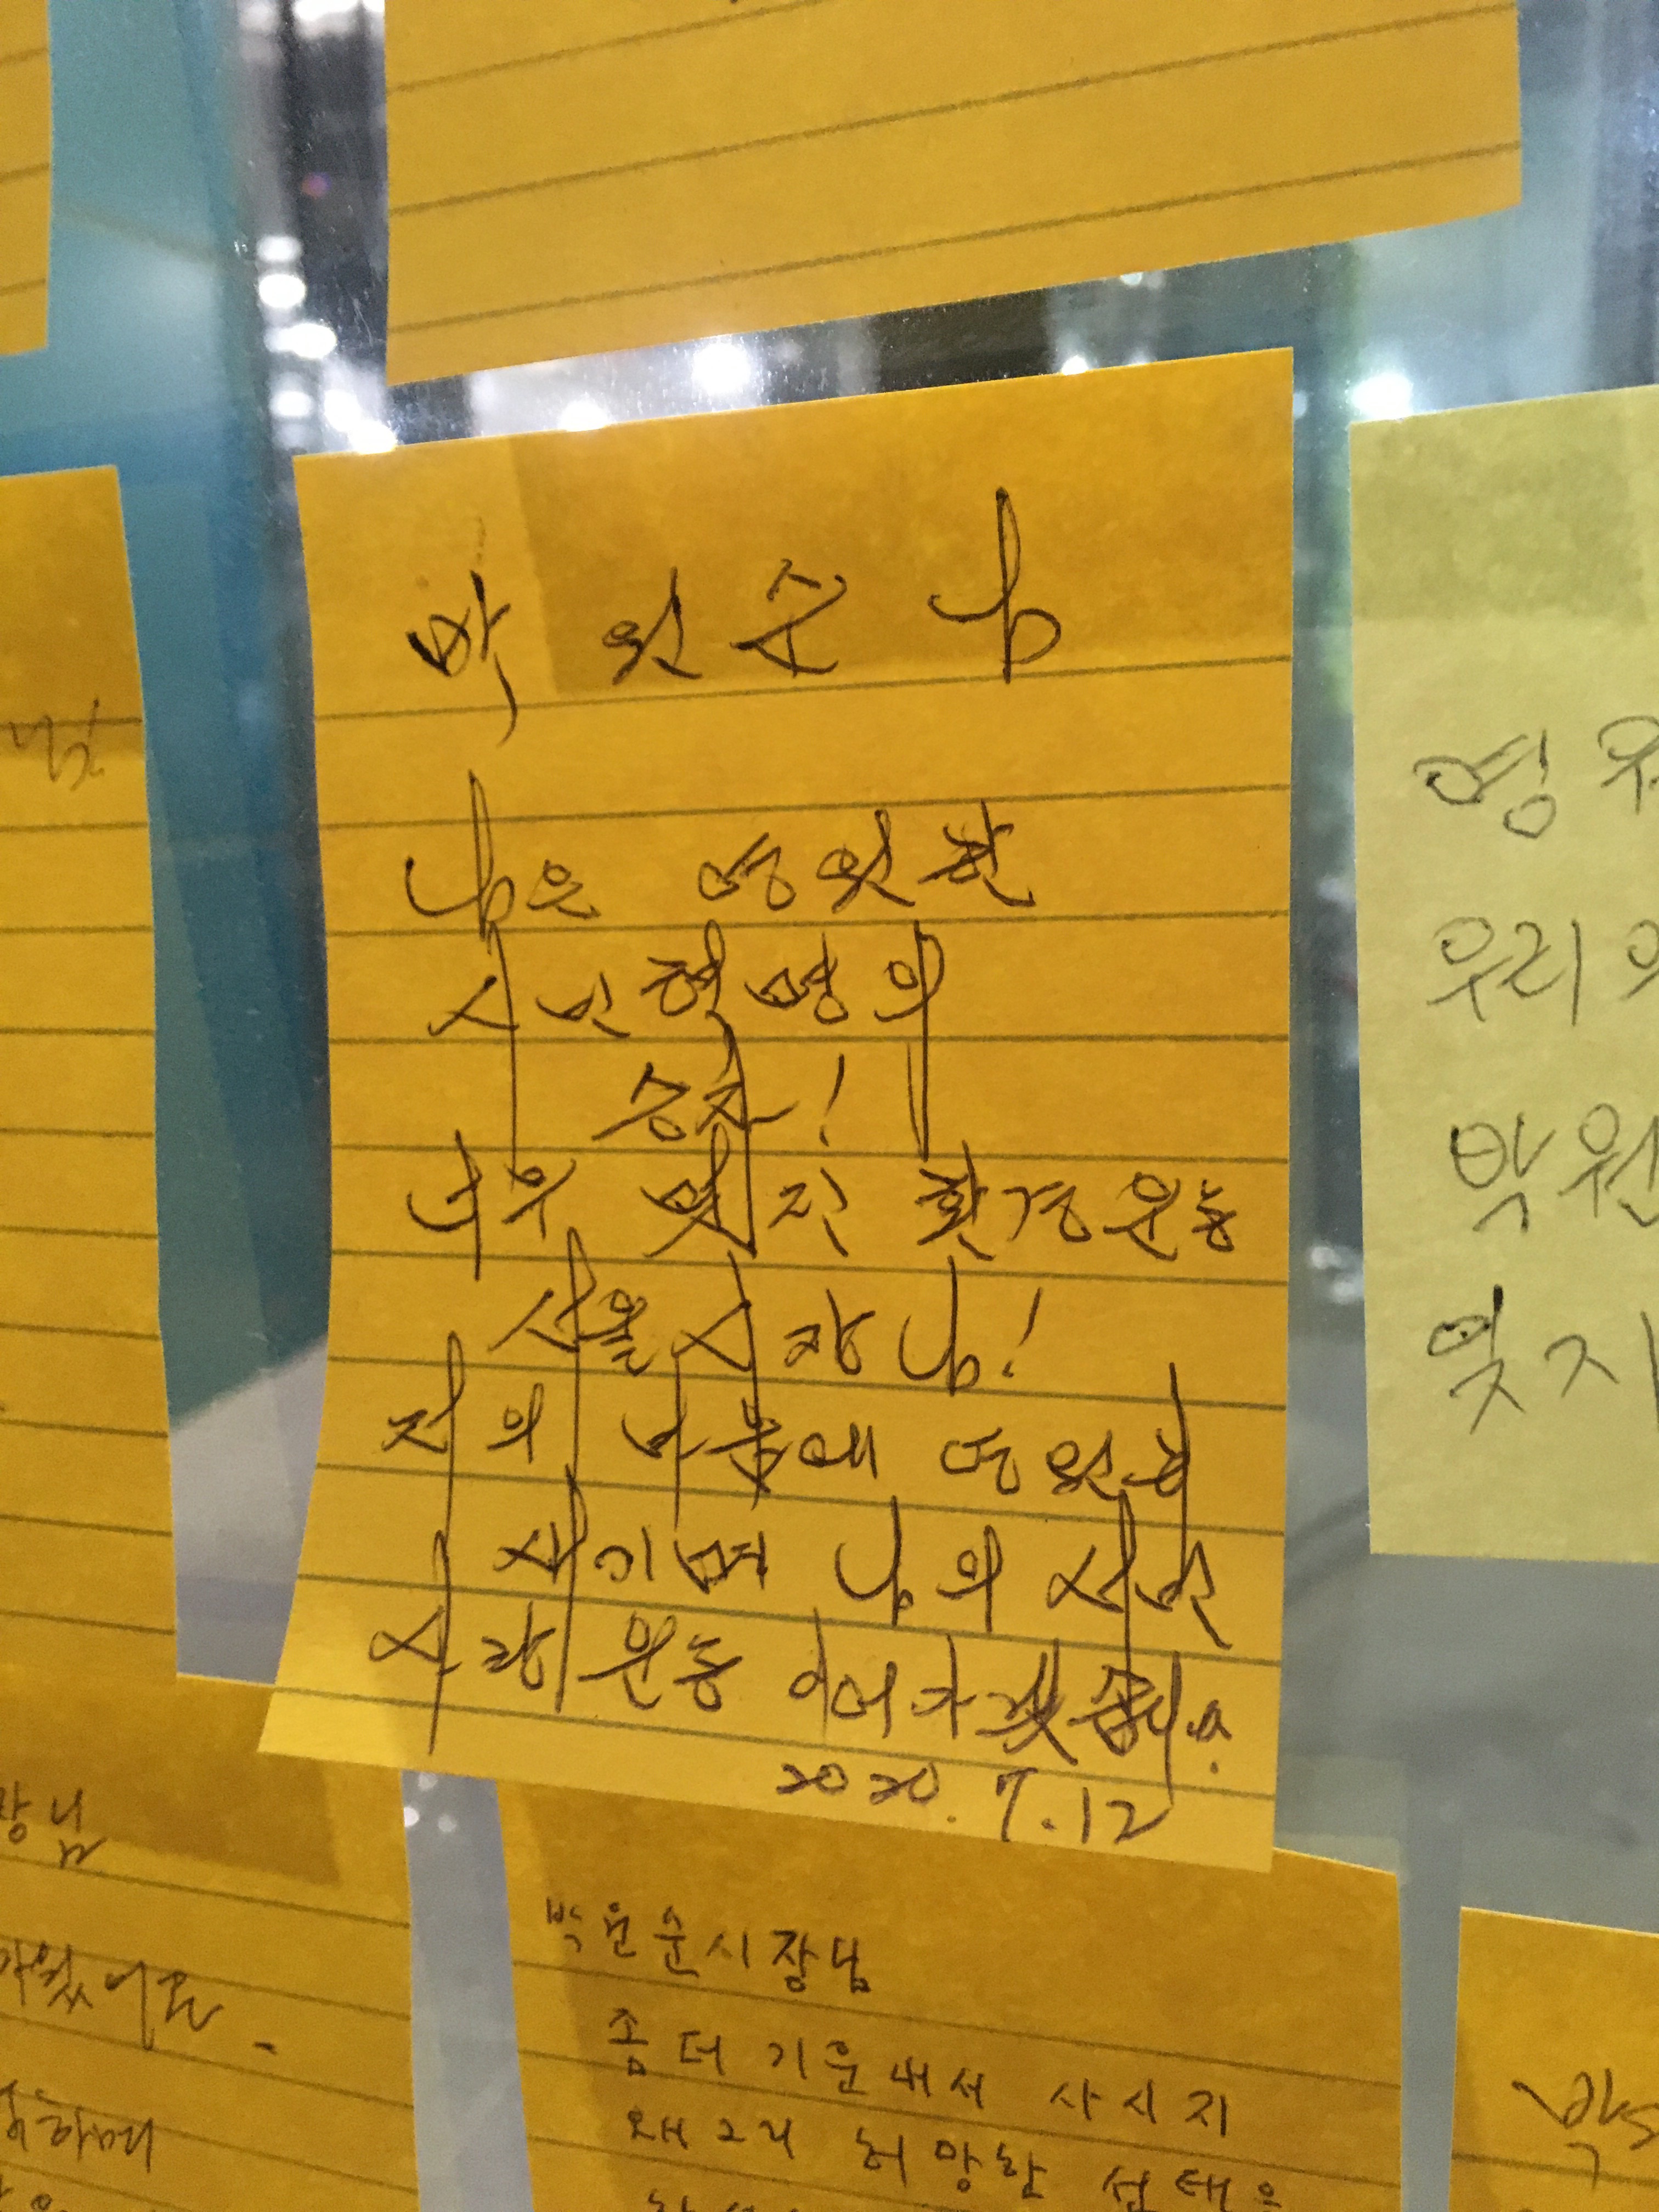 박원순님
님은 영원한
시민혁명의
승자!
너무 멋진 환경운동
서울시장님!
저의 마음에 영원히
새기며 님의 시민
사랑운동 이어가겠습니다.
2020. 7. 12
영원
우리의
박원
멋지
장님
박원순시장님
좀 더 기운내서 사시지
왜 그리 허망한 선택을